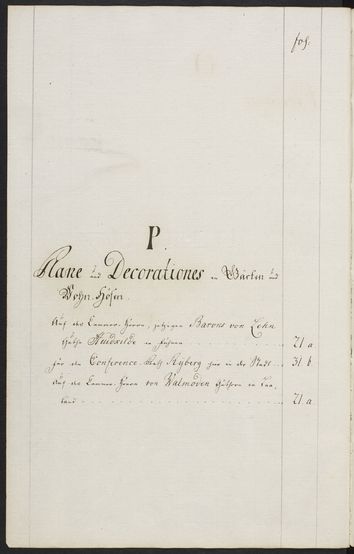 fol.
P.
Plane und Decorationes in Gärten und
Wohn-Höfen.
Auf des Cammer-Herrn, jetzigen Barons von Zehn
Guthe Hvidkilde in Fühnen 21 a
für den Conference-Rath Ryberg hier in der Stadt 31 b.
Auf des Cammer-Herrn von Walmoden Güthern in Laa-
land 21 a.